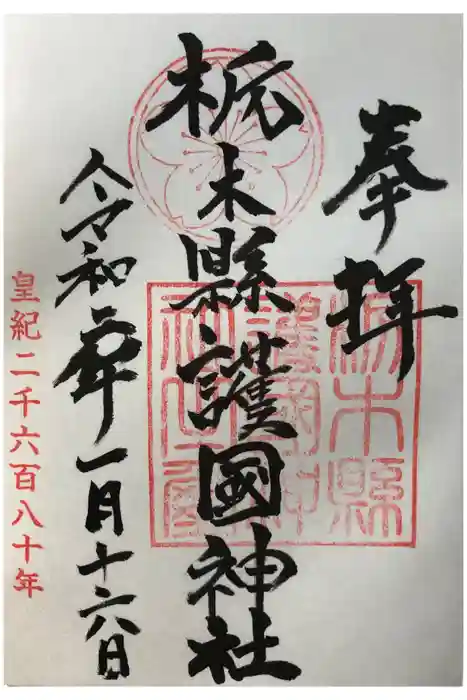 奉拝
栃木縣護國神社
令和二年一月十六日
皇紀二千六百八十年
栃木縣
護國神
社之璽